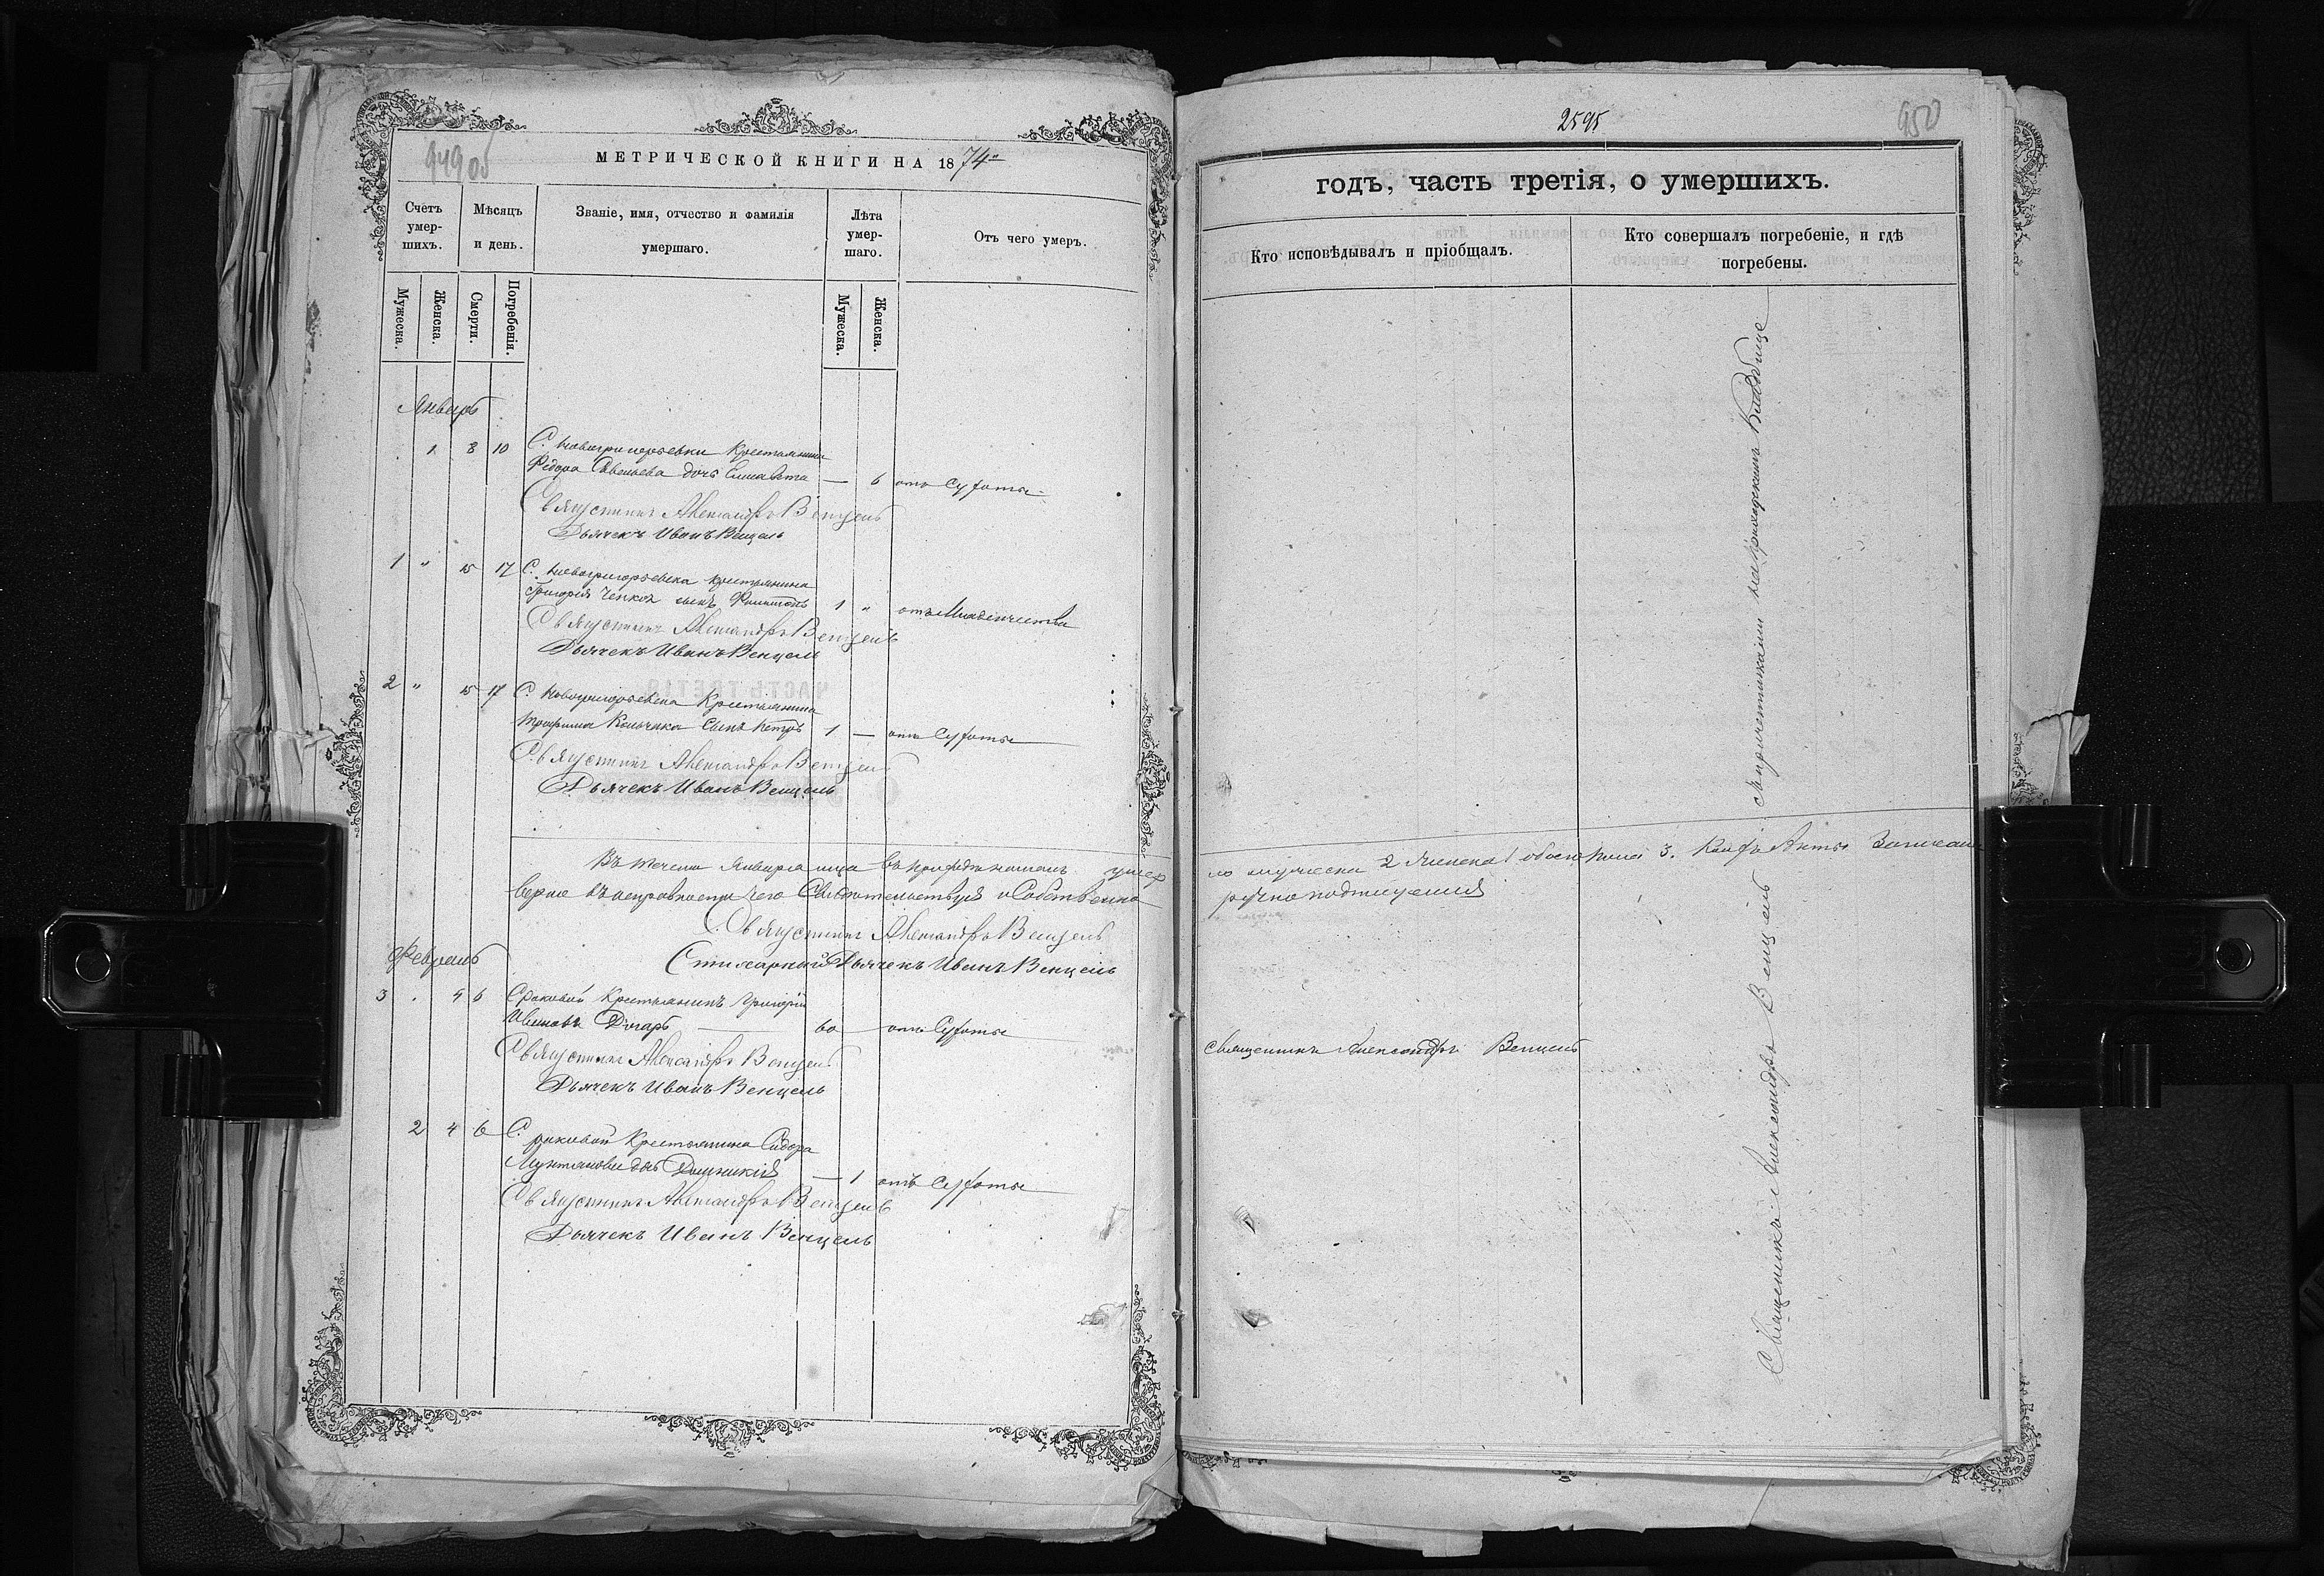 949 об
МЕТРИЧЕСКОЙ КНИГИ НА 1874
Счетъ умер-шихъ.
Мѣсяцъ и день.
Званіе, имя, отчество и фамилія умершаго.
Лѣта умер-шаго.
Отъ чего умеръ.
Мужеска.
Женска.
Смерти.
Погребенія.
Мужеска.
Женска.
Январь
1 8 10 С. Новогригорьевки Крестьянина
Федора Савельева дочь Елисавета — 6 отъ Сухоты
Священникъ Александръ Венцель
Дьячекъ Иванъ Венцель
1 " 15 17 С. Новогригорьевка крестьянина
Григорія сынъ 1 " отъ Младенчества
Священникъ Александръ Венцель
Дьячекъ Иванъ Венцель
2 " 15 17 С. Новогригорьевка Крестьянина
Трофима сынъ Петръ 1 — отъ Сухоты
Священникъ Александръ Венцель
Дьячекъ Иванъ Венцель
Въ течении Января м͠ца въ приходѣ нашемъ умер
вѣрно въ исправности чего Свидѣтельствуя и Собственно
Священникъ Александръ Венцель
Стихарный Дьячекъ Иванъ Венцель
Февраль
3 . 4 6 С Раковой Крестьянинъ Григорій
Ивановъ 60 — отъ Сухоты
Священникъ Александръ Венцель
Дьячекъ Иванъ Венцель
2 4 6 С. Раковой Крестьянина Сидора
дочь — 1 отъ Сухоты
Священникъ Александръ Венцель
Дьячекъ Иванъ Венцель
2595
950
годъ, часть третія, о умершихъ.
Кто исповѣдывалъ и пріобщалъ.
Кто совершалъ погребеніе, и гдѣ погребены.
ло мужеска 2 женска 1 обоего пола 3. Акты Записаны
ручно подписуемся
священникъ Александръ Венцель
Священникъ Александръ Венцель съ причетниками на приходскомъ Кладбище